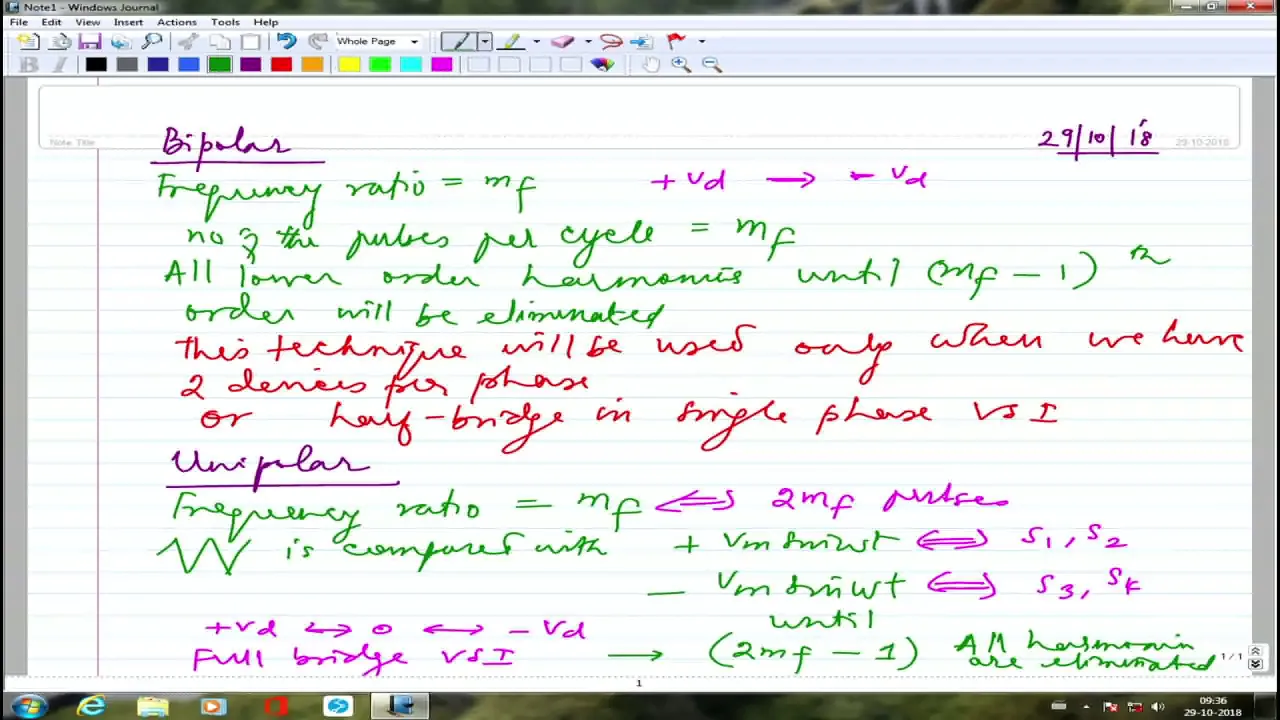 Note1 - Windows Journal
File Edit View Insert Actions Tools Help
Whole Page
B I
Note Title
29-10-2018
Bipolar
29/10/18
Frequency ratio = mf
+Vd → -Vd
no of the pulses per cycle = mf
All lower order harmonics until (mf - 1)th
order will be eliminated
This technique will be used only when we have
2 devices per phase
or half-bridge in single phase VSI
Unipolar
Frequency ratio = mf ⟺ 2mf pulses
is compared with + Vm sinwt ⟺ S1, S2
- Vm sinwt ⟺ S3, S4
+Vd ↔ 0 ↔ -Vd
until
Full bridge VSI → (2mf - 1) All harmonics
are eliminated
1 / 1
1
09:36
29-10-2018